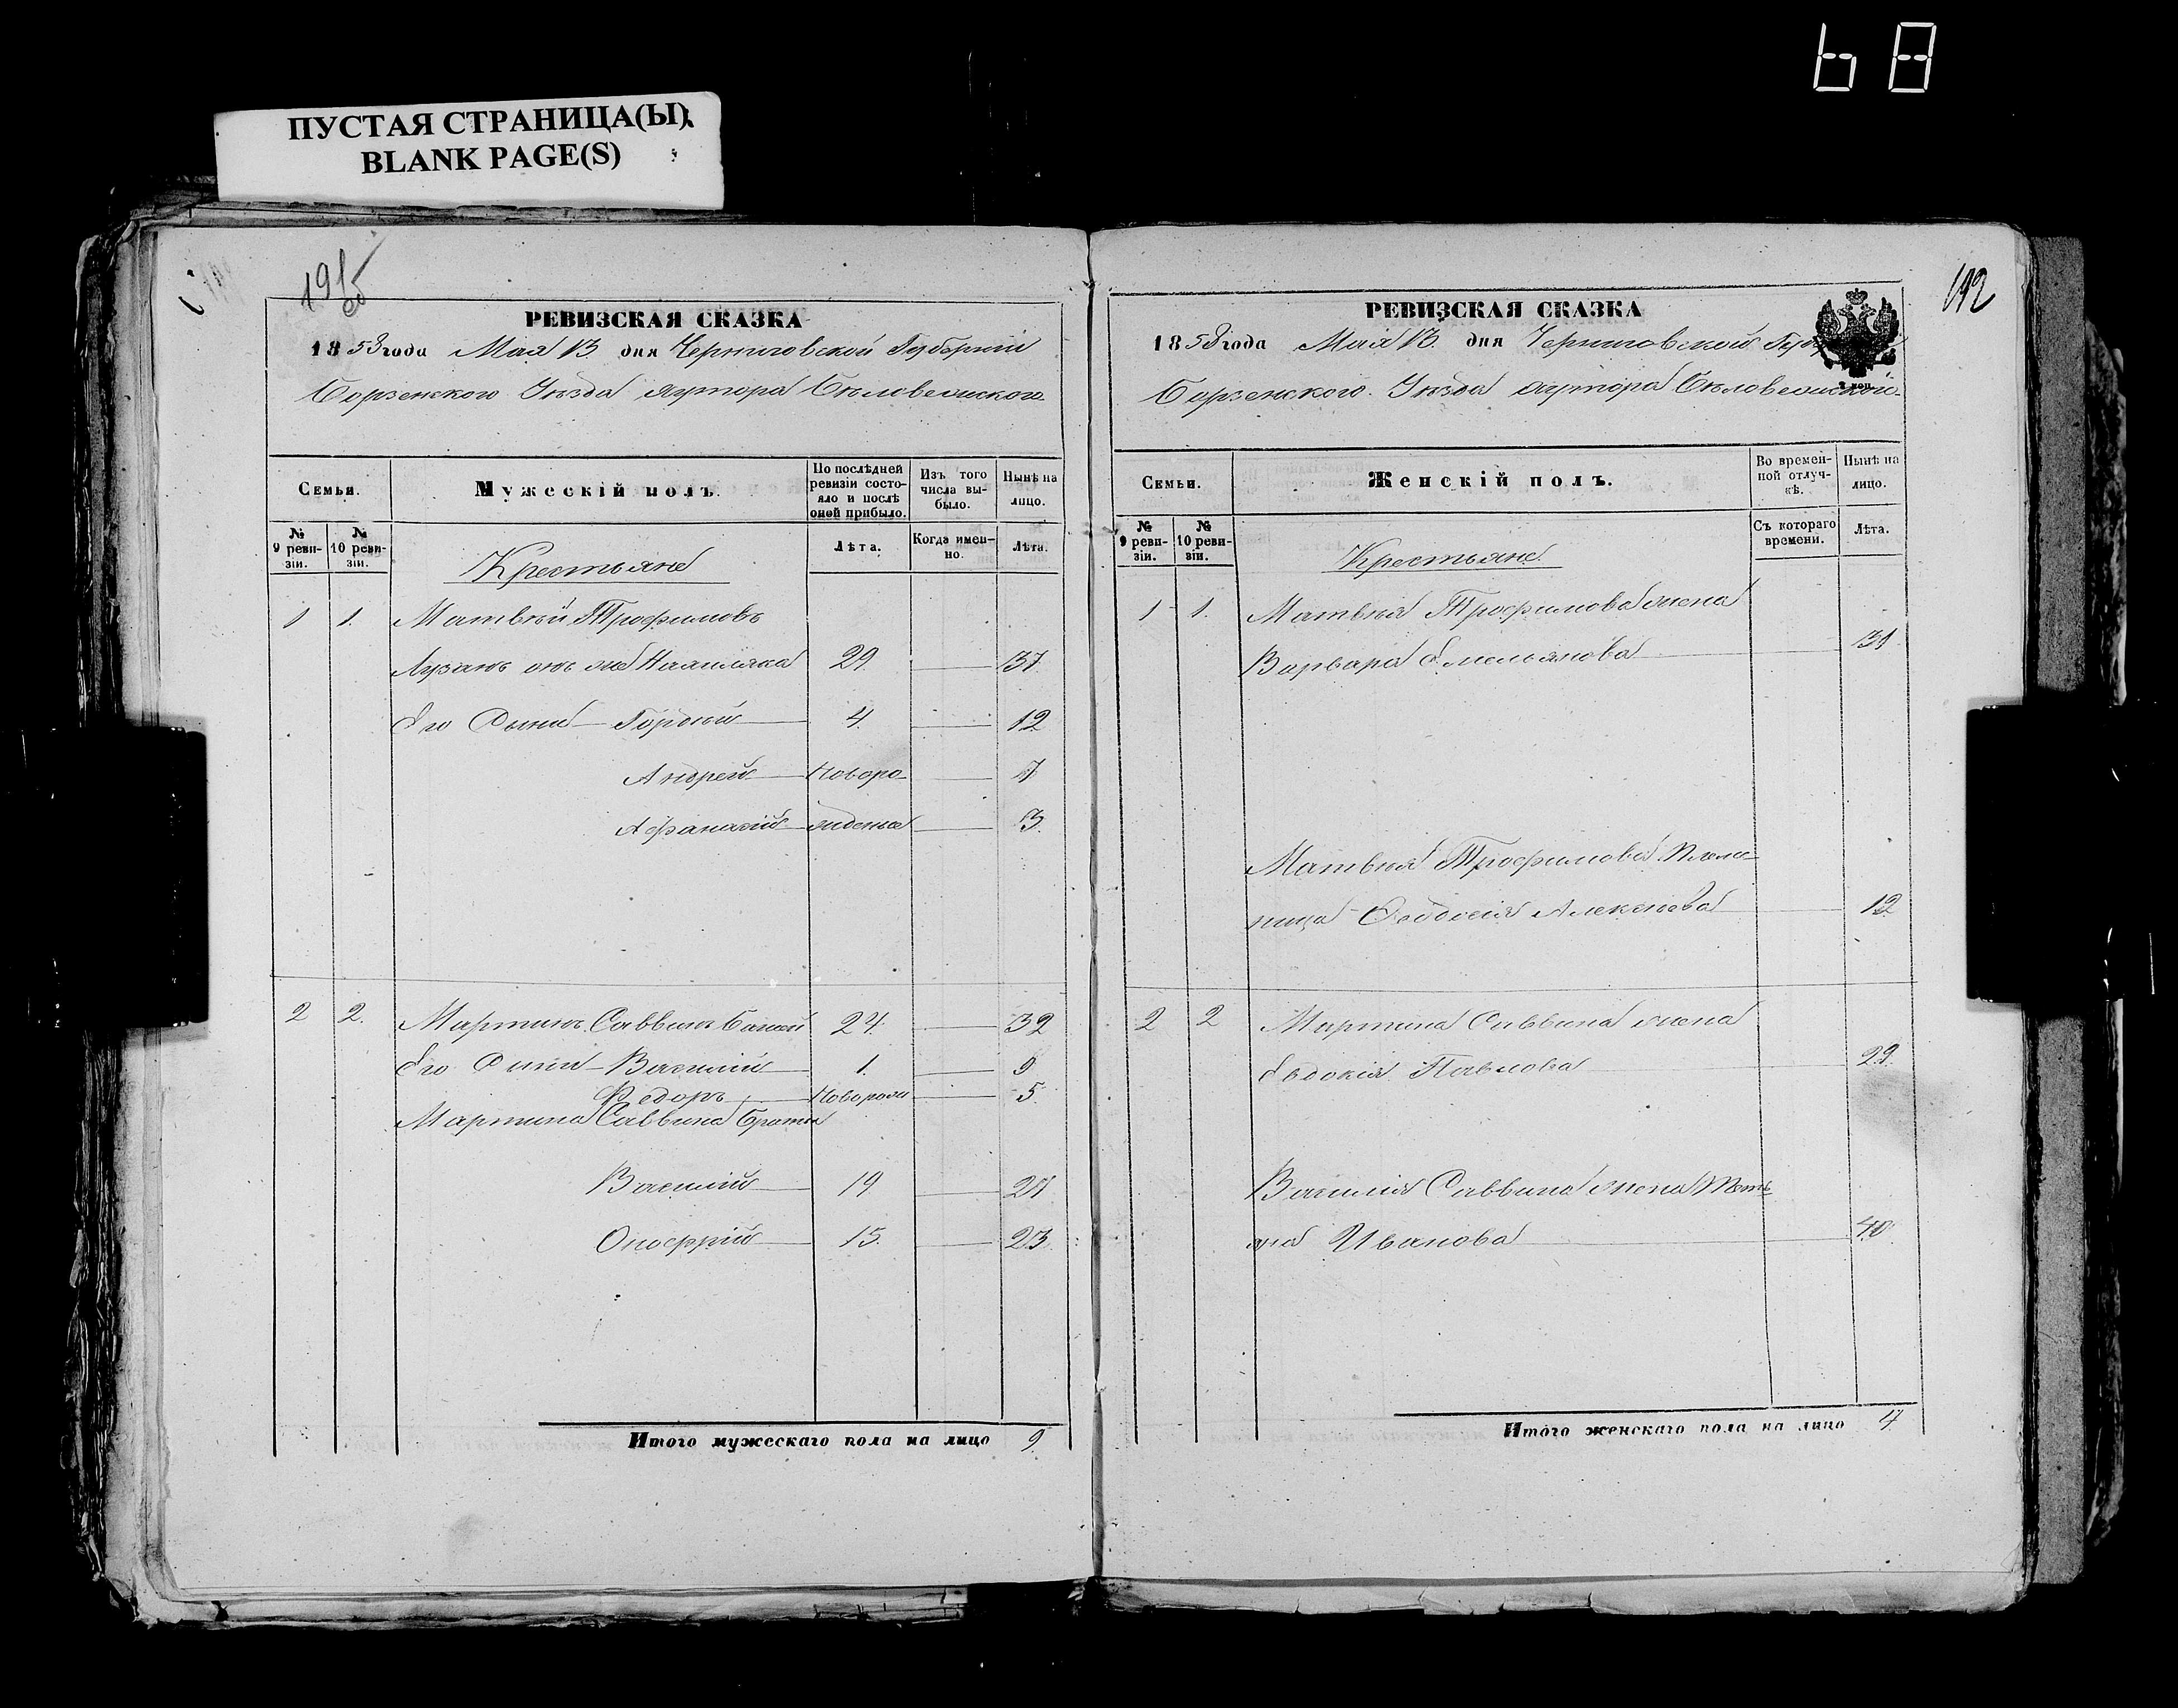 ПУСТАЯ СТРАНИЦА(Ы)
BLANK PAGE(S)
68
РЕВИЗСКАЯ СКАЗКА
1858 года Мая 13 дня Черниговской Губерніи
Борзенского Уѣзда хутора Бѣловежского
Семьи.
Мужескій полъ.
По послѣдней ревизіи состояло и послѣ оной прибыло.
Изъ того числа выбыло.
Нынѣ на лицо.
№ 9 ревизіи.
№ 10 ревизіи.
Лѣта.
Когда именно.
Лѣта.
Крестьяне
1 1. Матвѣй Трофимовъ
онъ же 29 37
Его Сыны Гордѣй 4 12
Андрей Новоро 7
Афанасій жденые 3
2 2. Мартинъ Саввинъ 24 32
Его Сыны Василій 1 9
Федоръ Новорож 5
Мартина Саввина братья
Василій 19 27
Оноффрій 15 23
Итого мужескаго пола на лицо 9
192
РЕВИЗСКАЯ СКАЗКА
1858 года Мая 13 дня Черниговской
Борзенского Уѣзда хутора
Семьи.
Женскій полъ.
Во временной отлучкѣ.
Нынѣ на лицо.
№ 9 ревизіи.
№ 10 ревизіи.
Съ котораго времени.
Лѣта.
Крестьяне
1 1. Матвѣя Трофимова жена
Варвара Емельянова 31
Матвѣя Трофимова племя
ница Феодосія Алексѣева 12
2 2 Мартина Саввина жена
Евдокія Павлова 29
Василія Саввина жена Тать
яна Иванова
Итого женскаго пола на лицо 4